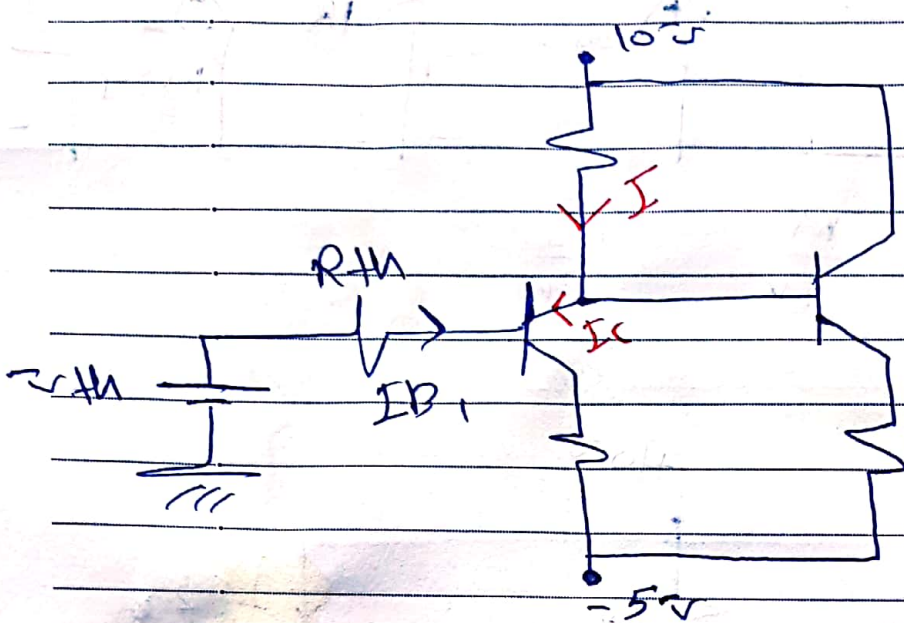 10v
I
Rth
Ic
vth
IB1
-5v